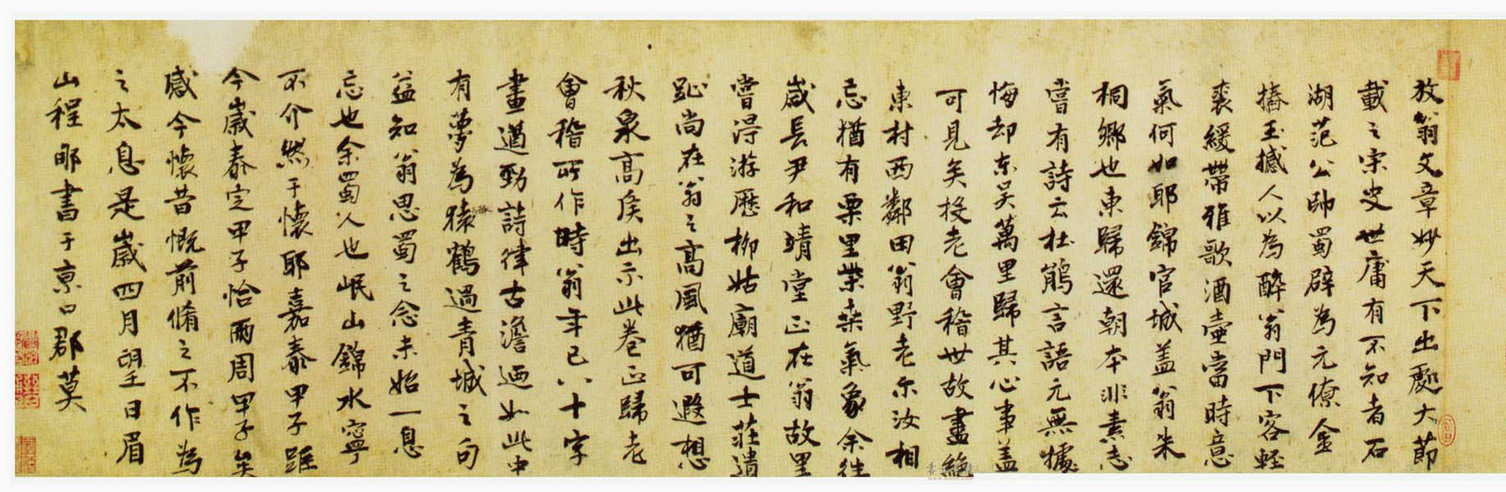 放翁文章妙天下出處大節
載之宋史世庸有不知者石
湖范公帥蜀辟為元僚金
摏玉撼人以為醉翁門下客輕
裘緩帶雅歌酒壺當時意
氣何如耶錦官城盖翁朱
桐鄉也東歸還朝本非素志
嘗有詩云杜鵑言語元無據
悔却東吳萬里歸其心事盖
可見矣投老會稽世故盡絕
東村西鄰田翁野老尔汝相
忘猶有栗里柴桑氣象余往
歲長尹和靖堂正在翁故里
嘗得游歷柳姑廟道士莊遺
趾尚在翁之高風猶可遐想
秋泉高矦出示此卷正歸老
會稽所作時翁年已八十字
畫遒勁詩律古澹迺如此中
有夢為猿鶴過青城之句
益知翁思蜀之念未始一息
忘也余蜀人也岷山錦水寧
不介然于懷耶嘉泰甲子距
今歲泰定甲子恰兩周甲子矣
感今懷昔慨前脩之不作為
之太息是歲四月朢日眉
山程郇書于京口郡莫